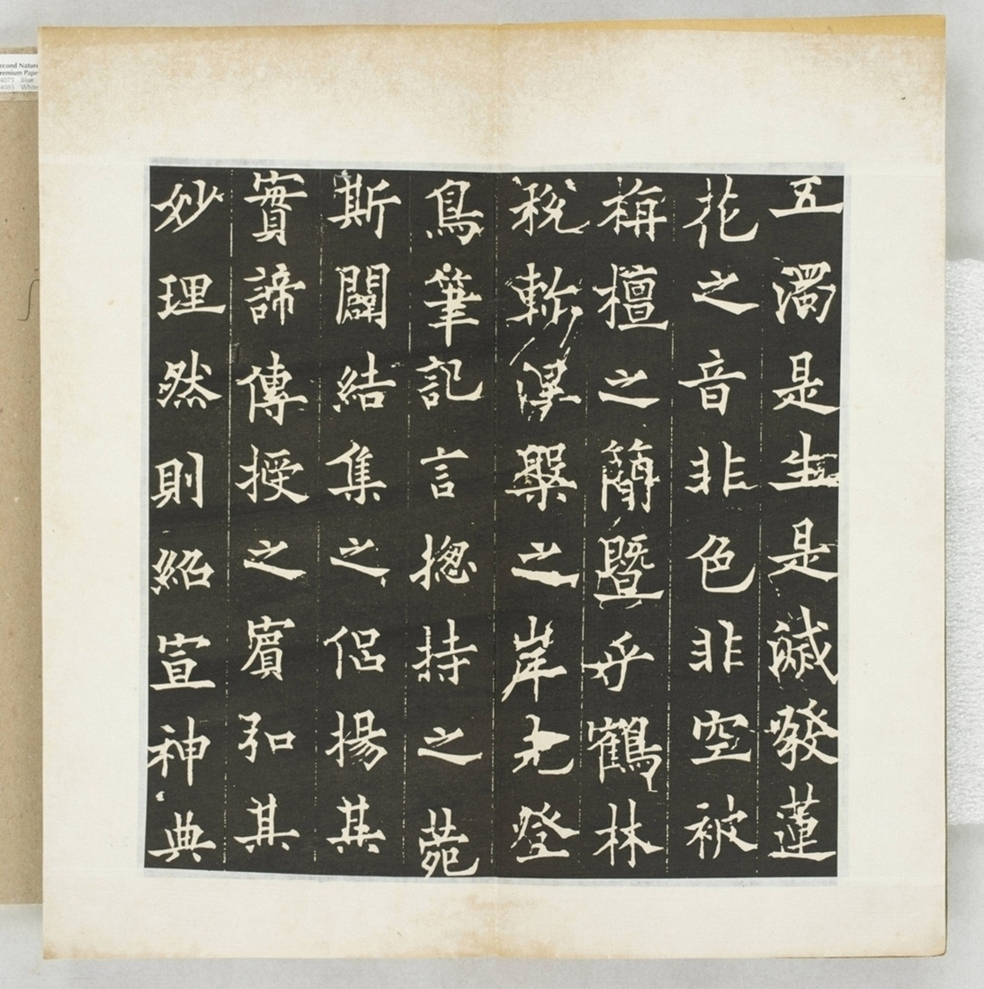 五濁是生是滅發蓮
花之音非色非空被
栴檀之簡暨乎鶴林
稅軫涅槃之岸先登
鳥筆記言揔持之菀
斯闢結集之侶揚其
實諦傳授之賓弘其
妙理然則紹宣神典
econd Nature
remium Pape
4075 Blue
4085 White